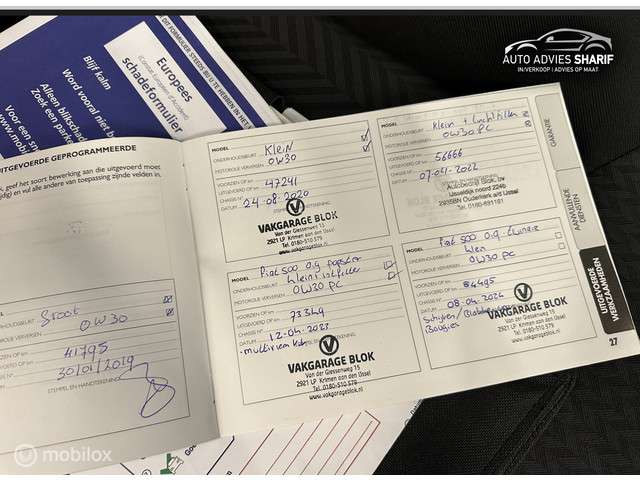 AUTO ADVIES SHARIF
IN/VERKOOP | ADVIES OP MAAT
DIT FORMULIER STEEDS BIJ U TE HEBBEN IN HET
Europees
schadeformulier
Blijf kalm
Word vooral niet
Alleen blikschade
UITGEVOERDE GEPROGRAMMEERDE
geef het soort bewerking aan die uitgevoerd moet
en vul alle andere van toepassing zijnde velden in.
ONDERHOUDSBEURT
Groot
MOTOROLIE VERVERSEN
0W30
41795
30/01/2019
STEMPEL EN HANDTEKENING
MODEL
ONDERHOUDSBEURT Klein
MOTOROLIE VERVERSEN 0W30
VOORZIEN OP km
UITGEVOERD OP km 47241
CHASSIS Nº
DATUM 24-08-2020
VAKGARAGE BLOK
Van der Giessenweg 15
2921 LP Krimpen aan den IJssel
Tel. 0180-510 579
MODEL
ONDERHOUDSBEURT Klein + Luchtfilter
MOTOROLIE VERVERSEN 0W30 PC
VOORZIEN OP km
UITGEVOERD OP km 56666
CHASSIS Nº
DATUM 07-04-2022
Autobedrijf Blok, uw
IJsseldijk noord 224b
2935BN Ouderkerk a/d IJssel
Tel. 0180-681191
MODEL Fiat 500 0.9
ONDERHOUDSBEURT
MOTOROLIE VERVERSEN 0W30 PC
VOORZIEN OP km
UITGEVOERD OP km
CHASSIS Nº
DATUM 12-04-2023
VAKGARAGE BLOK
Van der Giessenweg 15
2921 LP Krimpen aan den IJssel
Tel. 0180-510 579
www.vakgarageblok.nl
MODEL Fiat 500 0.9
ONDERHOUDSBEURT Klein
MOTOROLIE VERVERSEN 0W30 PC
VOORZIEN OP km
UITGEVOERD OP km 84495
CHASSIS Nº
DATUM 08-04-2024
Bougies
VAKGARAGE BLOK
Van der Giessenweg 15
2921 LP Krimpen aan den IJssel
Tel. 0180-510 579
www.vakgarageblok.nl
GARANTIE
AANVULLENDE
DIENSTEN
UITGEVOERDE
WERKZAAMHEDEN
27
mobilox